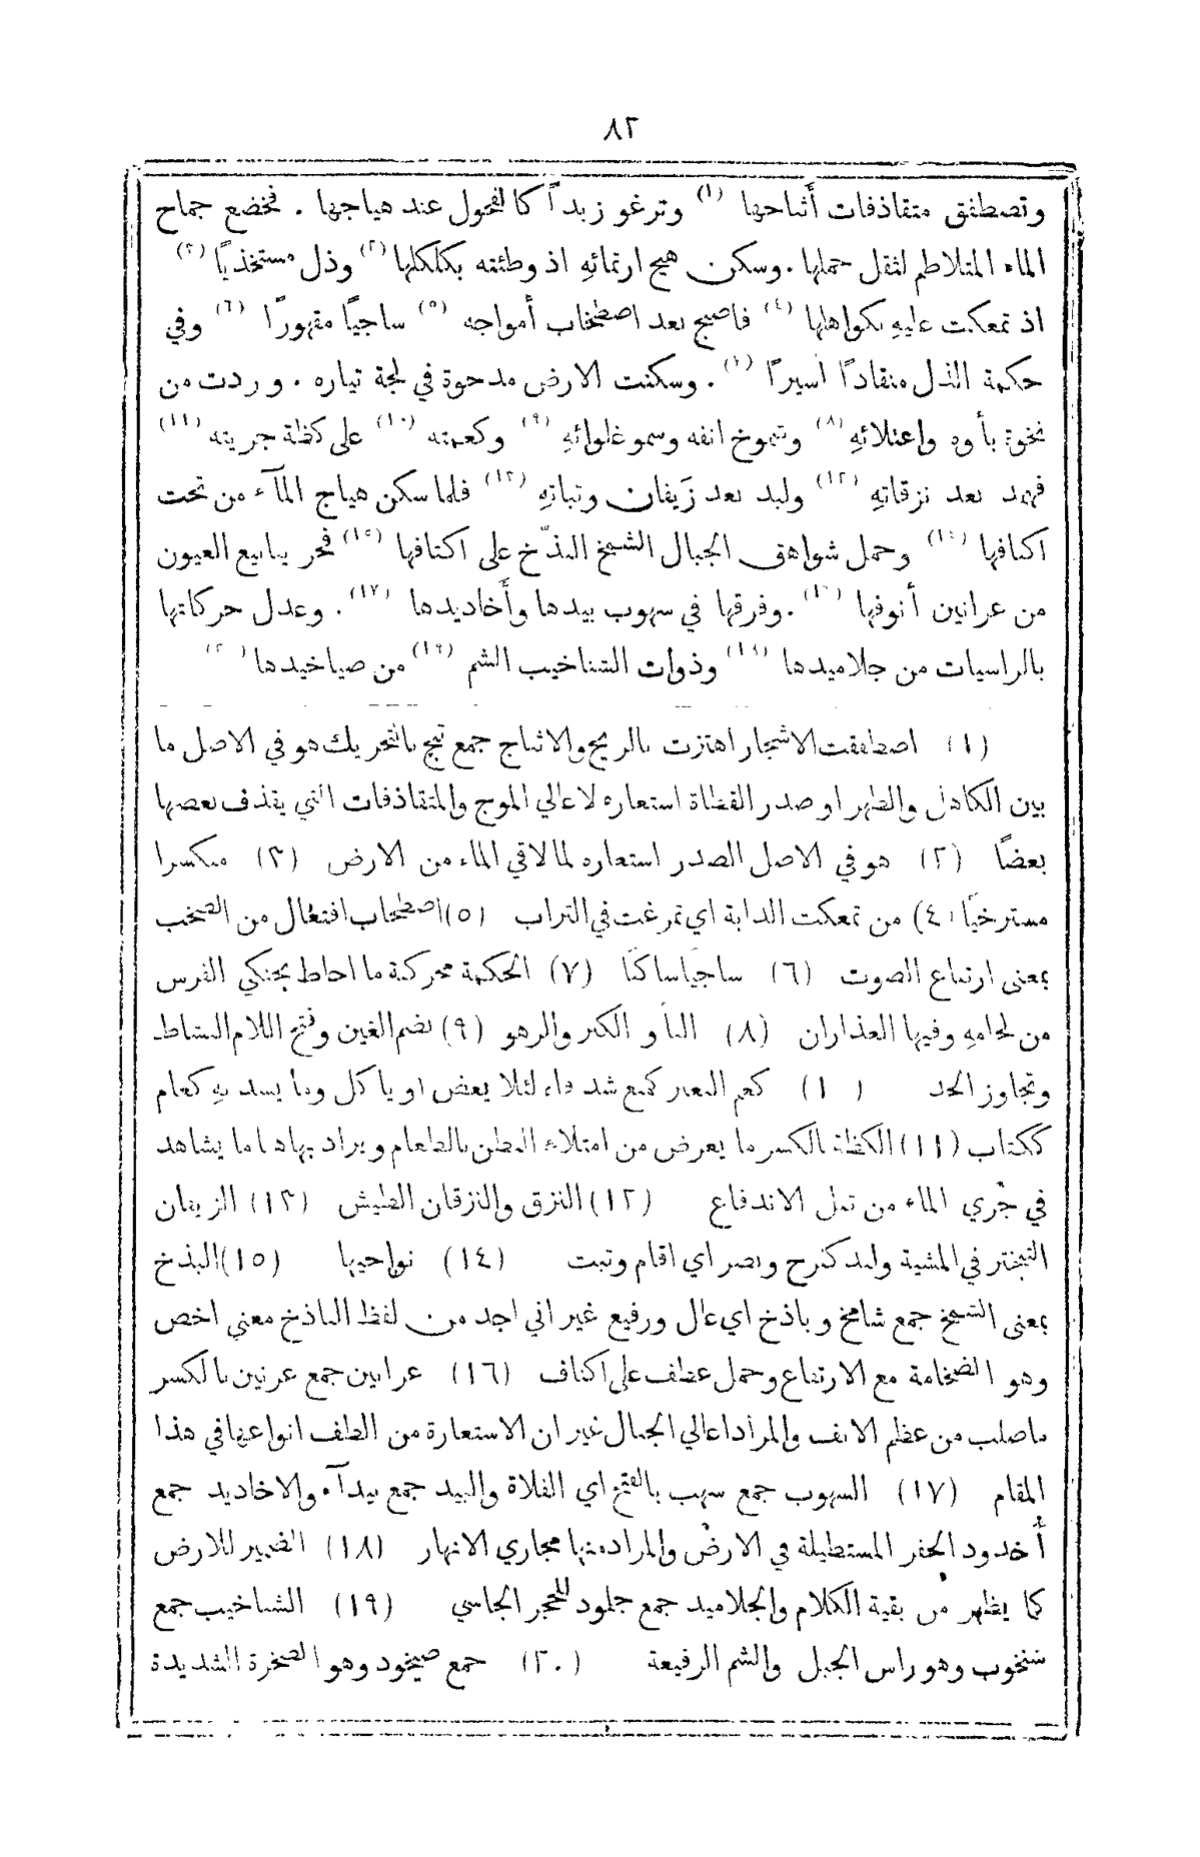 ٨٢
وتصطفق متقاذفات أثباجها (١) وترغو زبداً كالفحول عند هياجها . فخضع جماح
الماء المتلاطم لثقل حملها . وسكن هيج ارتمائهِ اذ وطئته بكلكلها (٢) وذل مستخذياً (٣)
اذ تمعكت عليهِ بكواهلها (٤) فاصبح بعد اصطخاب أمواجه (٥) ساجياً مقهوراً (٦) وفي
حكمة الذل منقاداً أسيراً (٧) . وسكنت الارض مدحوة في لجة تياره . وردت من
نخوة بأوه واعتلائهِ (٨) وشموخ انفه وسمو غلوائهِ (٩) وكعمته (١٠) على كظة جريته (١١)
فهمد بعد نزقاتهِ (١٢) ولبد بعد زَيفان وثباتهِ (١٣) فلما سكن هياج المآء من تحت
اكنافها (١٤) وحمل شواهق الجبال الشمخ البذّخ على اكتافها (١٥) فجر ينابيع العيون
من عرانين أنوفها (١٦) . وفرقها في سهوب بيدها وأَخاديدها (١٧) . وعدل حركاتها
بالراسيات من جلاميدها (١٨) وذوات الشناخيب الشم (١٩) من صياخيدها (٢٠)
(١) اصطفقت الاشجار اهتزت بالريح والاثباج جمع ثبج بالتحريك هو في الاصل ما
بين الكاهل والظهر او صدر القطاة استعاره لاعالي الموج والمتقاذفات التي يقذف بعضها
بعضاً (٢) هو في الاصل الصدر استعاره لما لاقي الماء من الارض (٣) منكسرا
مسترخيًا (٤) من تمعكت الدابة اي تمرغت في التراب (٥) اصطخاب افتعال من الصخب
بمعنى ارتفاع الصوت (٦) ساجيًا ساكنًا (٧) الحكمة محركة ما احاط بحنكي الفرس
من لجامهِ وفيها العذاران (٨) البأو الكبر والزهو (٩) بضم الغين وفتح اللام النشاط
وتجاوز الحد (١٠) كعم البعير كمنع شد فاه لئلا يعض او ياكل وما يسد بهِ كعام
ككتاب (١١) الكظة بالكسر ما يعرض من امتلاء البطن بالطعام ويراد بها هنا ما يشاهد
في جري الماء من ثقل الاندفاع (١٢) النزق والنزقان الطيش (١٣) الزيفان
التبختر في المشية ولبد كفرح ونصر اي اقام وثبت (١٤) نواحيها (١٥) البذخ
بمعنى الشمخ جمع شامخ وباذخ اي عال ورفيع غير اني اجد من لفظ الباذخ معنى اخص
وهو الضخامة مع الارتفاع وحمل عطف على اكناف (١٦) عرانين جمع عرنين بالكسر
ماصلب من عظم الانف والمراد اعالي الجبال غير ان الاستعارة من الطف انواعها في هذا
المقام (١٧) السهوب جمع سهب بالفتح اي الفلاة والبيد جمع بيدآء والاخاديد جمع
أُخدود الحفر المستطيلة في الارض والمراد منها مجاري الانهار (١٨) الضمير للارض
كما يظهر من بقية الكلام والجلاميد جمع جلمود للحجر الجاسي (١٩) الشناخيب جمع
شنخوب وهو راس الجبل والشم الرفيعة (٢٠) جمع صيخود وهو الصخرة الشديدة